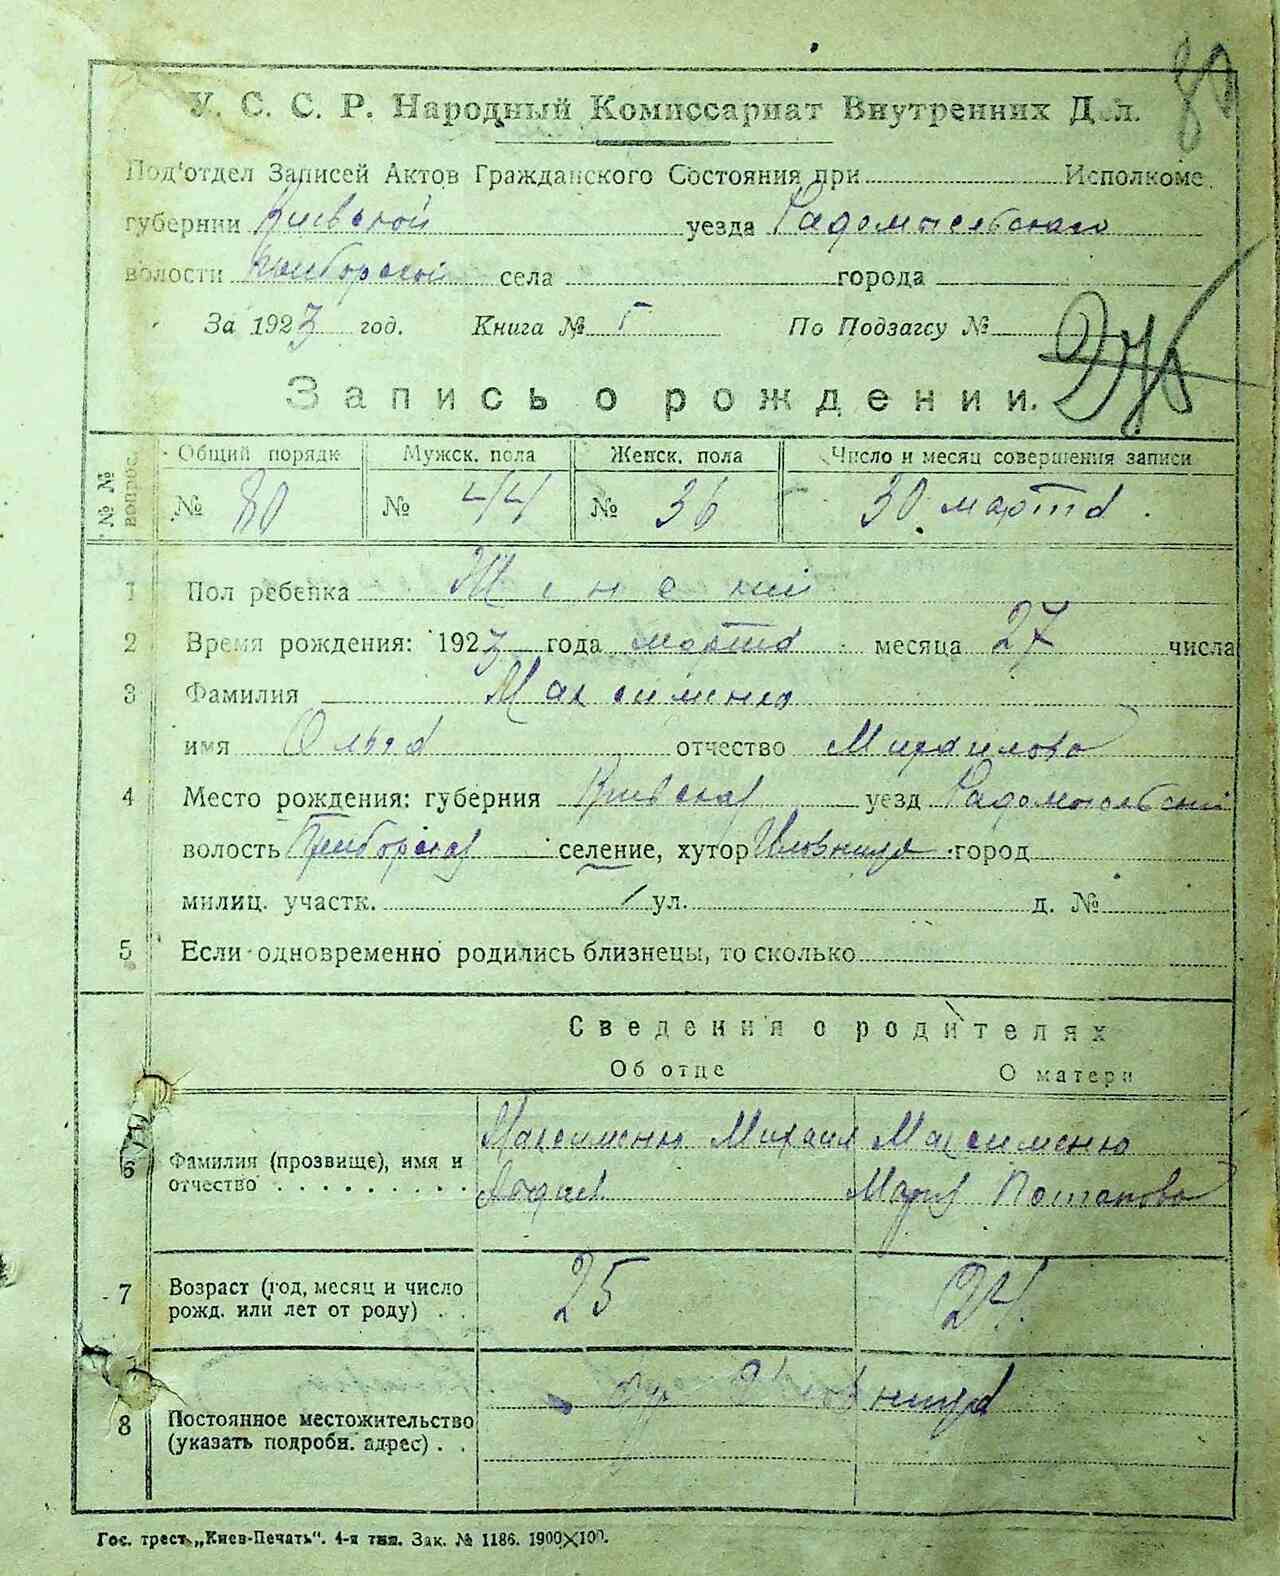 80
У. С. С. Р. Народный Комиссариат Внутренних Дел.
Под'отдел Записей Актов Гражданского Состояния при Исполкоме
губернии Киевской уезда Радомысльскаго
волости Приборской села города
За 1923 год. Книга № 1 По Подзагсу №
Запись о рождении.
№ № вопрос. Общий порядк Мужск. пола Женск. пола Число и месяц совершения записи
№ 80 № 44 № 36 30 марта.
1 Пол ребенка Женский
2 Время рождения: 1923 года марта месяца 27 числа
3 Фамилия Максименко
имя Ольга отчество Михайлова
4 Место рождения: губерния Киевская уезд Радомысльский
волость Приборская селение, хутор Иловница город
милиц. участк. ул. д. №
5 Если одновременно родились близнецы, то сколько
Сведения о родителях
Об отце О матери
Максименко Михаил Максименко
6 Фамилия (прозвище), имя и
отчество Мария Потапова
7 Возраст (год, месяц и число
рожд. или лет от роду) 25 24
Иловница
8 Постоянное местожительство
(указать подробн. адрес)
Гос. трест „Киев-Печать“. 4-я тип. Зак. № 1186. 1900×100.